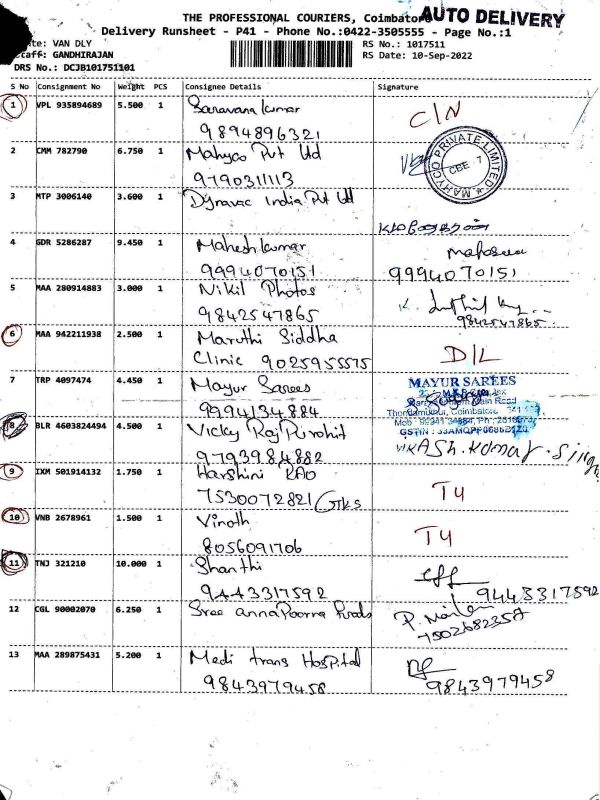 THE PROFESSIONAL COURIERS, Coimbatore
AUTO DELIVERY
Delivery Runsheet - P41 - Phone No.:0422-3505555 - Page No.:1
VAN DLY
RS No.: 1017511
GANDHIRAJAN
RS Date: 10-Sep-2022
DRS No.: DCJB101751101
S No Consignment No Weight PCS Consignee Details Signature
1 VPL 935894689 5.500 1 Saravana Kumar
9894896321
C/N
2 CMM 782790 6.750 1 Mahyco Pvt Ltd
9790311113
MAHYCO PRIVATE LIMITED
CBE 7
3 MTP 3006140 3.600 1 Dynavac India Pvt Ltd
4 GDR 5286287 9.450 1 Mahesh Kumar
9994070151
9994070151
5 MAA 280914883 3.000 1 Nikil Photos
9842547865
K.
9842547865
6 MAA 942211938 2.500 1 Maruthi Siddha
Clinic 9025955575
D/L
7 TRP 4097474 4.450 1 Mayur Sarees
9994134884
MAYUR SAREES
Main Road
Coimbatore
8 BLR 4603824494 4.500 1 Vicky Raj Purohit
9793984882
9 IXM 501914132 1.750 1 Harshini RAO
7530072821
T4
10 VNB 2678961 1.500 1 Vinoth
8056091706
T4
11 TNJ 321210 10.000 1 Shanthi
9443317592
9443317592
12 CGL 90002070 6.250 1 Sree anna Poorna Foods
P.
13 MAA 289875431 5.200 1 Medi trans Hospital
9843979458
9843979458